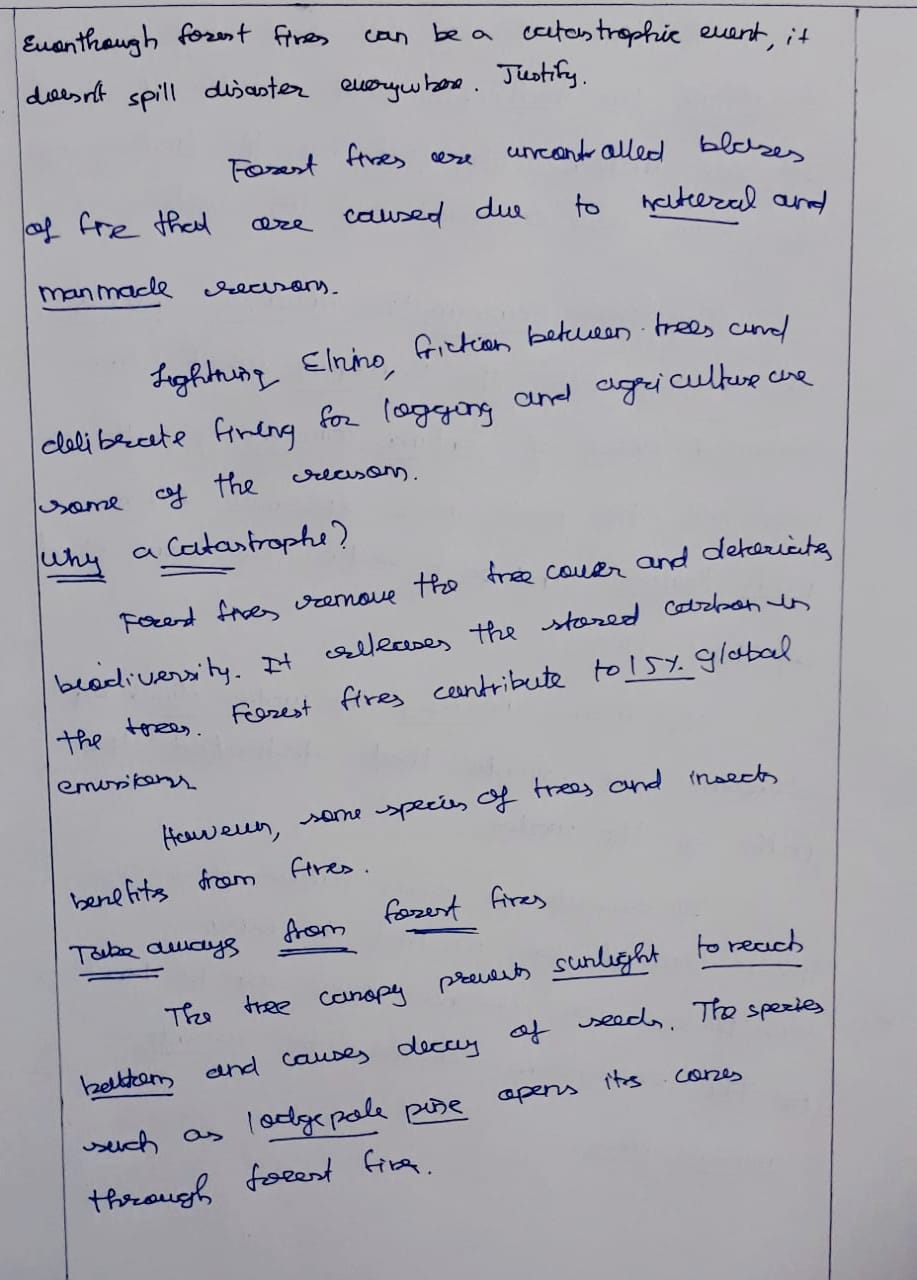 Eventhough forest fires can be a catastrophic event, it
doesn't spill disaster everywhere. Justify.
Forest fires are uncontrolled blazes
of fire that are caused due to natural and
manmade reasons.
Lightning Elnino, friction between trees and
deliberate firing for logging and agriculture are
some of the reasons.
Why a Catastrophe?
Forest fires remove the tree cover and deteriorates
biodiversity. It releases the stored carbon in
the trees. Forest fires contribute to 15% global
emissions
However, some species of trees and insects
benefits from fires.
Take aways from forest fires
The tree canopy prevents sunlight to reach
bottom and causes decay of seeds. The species
such as lodgepole pine opens its cones
through forest fire.